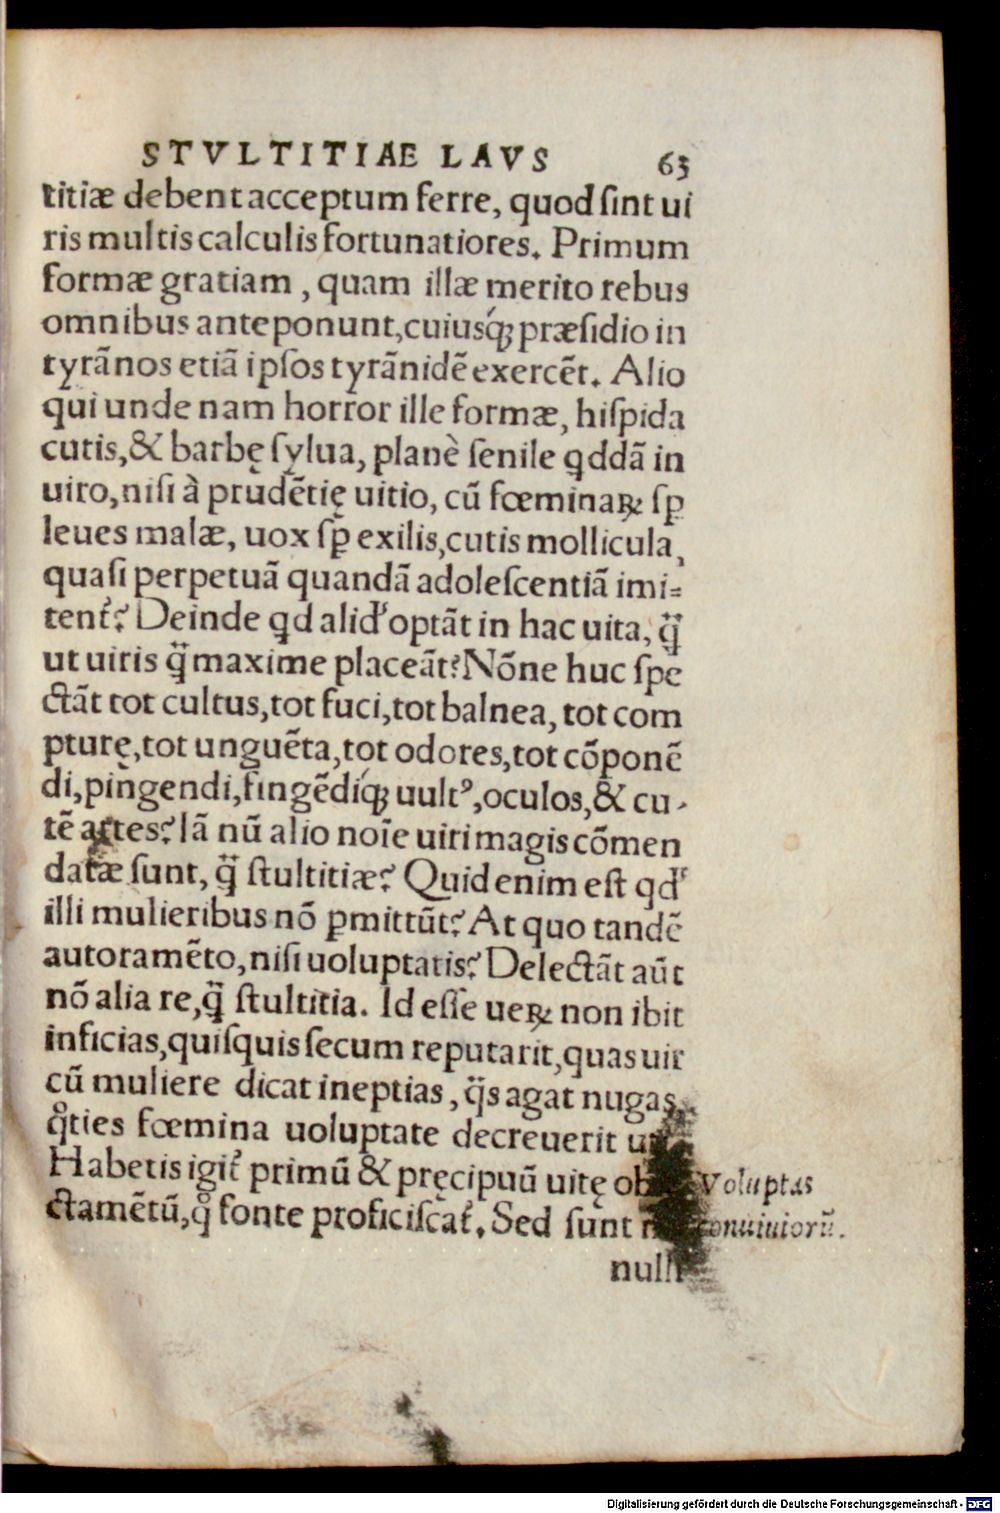 STVLTITIAE LAVS 63
titiæ debent acceptum ferre, quod ſint ui
ris multis calculis fortunatiores. Primum
formæ gratiam, quam illæ merito rebus
omnibus anteponunt, cuiusq́ꝫ præſidio in
tyrãnos etiã ipſos tyrãnidẽ exercẽt. Alio
qui unde nam horror ille formæ, hiſpida
cutis, & barbę ſylua, planè ſenile qddã in
uiro, niſi à prudẽtię uitio, cũ fœminaꝝ ſp
leues malæ, uox ſp̃ exilis, cutis mollicula,
quaſi perpetuã quandã adoleſcentiã imi⸗
tent᷑? Deinde qd alid᷑ optãt in hac uita, q̈̃
ut uiris q̈̃ maxime placeãt? Nõne huc ſpe
ctãt tot cultus, tot fuci, tot balnea, tot com
pturę, tot unguẽta, tot odores, tot cõponẽ
di, pingendi, fingẽdiq́ꝫ uultꝰ, oculos, & cu-
tẽ artes? Iã nũ alio noĩe uiri magis cõmen
datæ ſunt, q̈̃ ſtultitiæ? Quid enim eſt qd᷑
illi mulieribus nõ ꝑmittũt? At quo tandẽ
autoramẽto, niſi uoluptatis? Delectãt aũt
nõ alia re, q̈̃ ſtultitia. Id eſſe ueꝝ non ibit
inficias, quiſquis ſecum reputarit, quas uir
cũ muliere dicat ineptias, q̈̃s agat nugas,
qͦties fœmina uoluptate decreuerit
Habetis igit᷑ primũ & pręcipuũ uitę ob
ctamẽtũ, qͦ fonte proficiſcat᷑. Sed ſunt
Voluptas
conuiuiorũ.
nulli
Digitalisierung gefördert durch die Deutsche Forschungsgemeinschaft - DFG